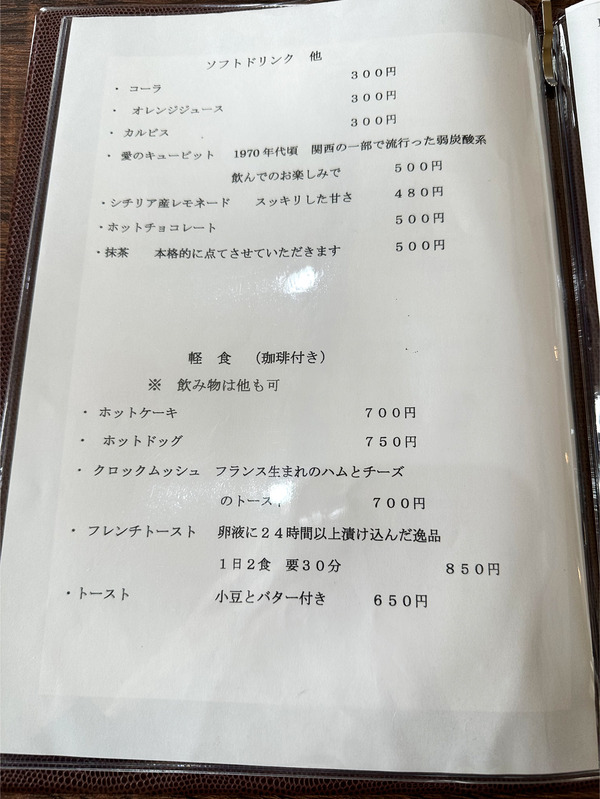 ソフトドリンク 他
・ コーラ 300円
・ オレンジジュース 300円
・ カルピス 300円
・ 愛のキューピット 1970年代頃 関西の一部で流行った弱炭酸系
飲んでのお楽しみで 500円
・シチリア産レモネード スッキリした甘さ 480円
・ホットチョコレート 500円
・抹茶 本格的に点てさせていただきます 500円
軽 食 (珈琲付き)
※ 飲み物は他も可
・ ホットケーキ 700円
・ ホットドッグ 750円
・ クロックムッシュ フランス生まれのハムとチーズ
のトースト 700円
・ フレンチトースト 卵液に24時間以上漬け込んだ逸品
1日2食 要30分 850円
・トースト 小豆とバター付き 650円